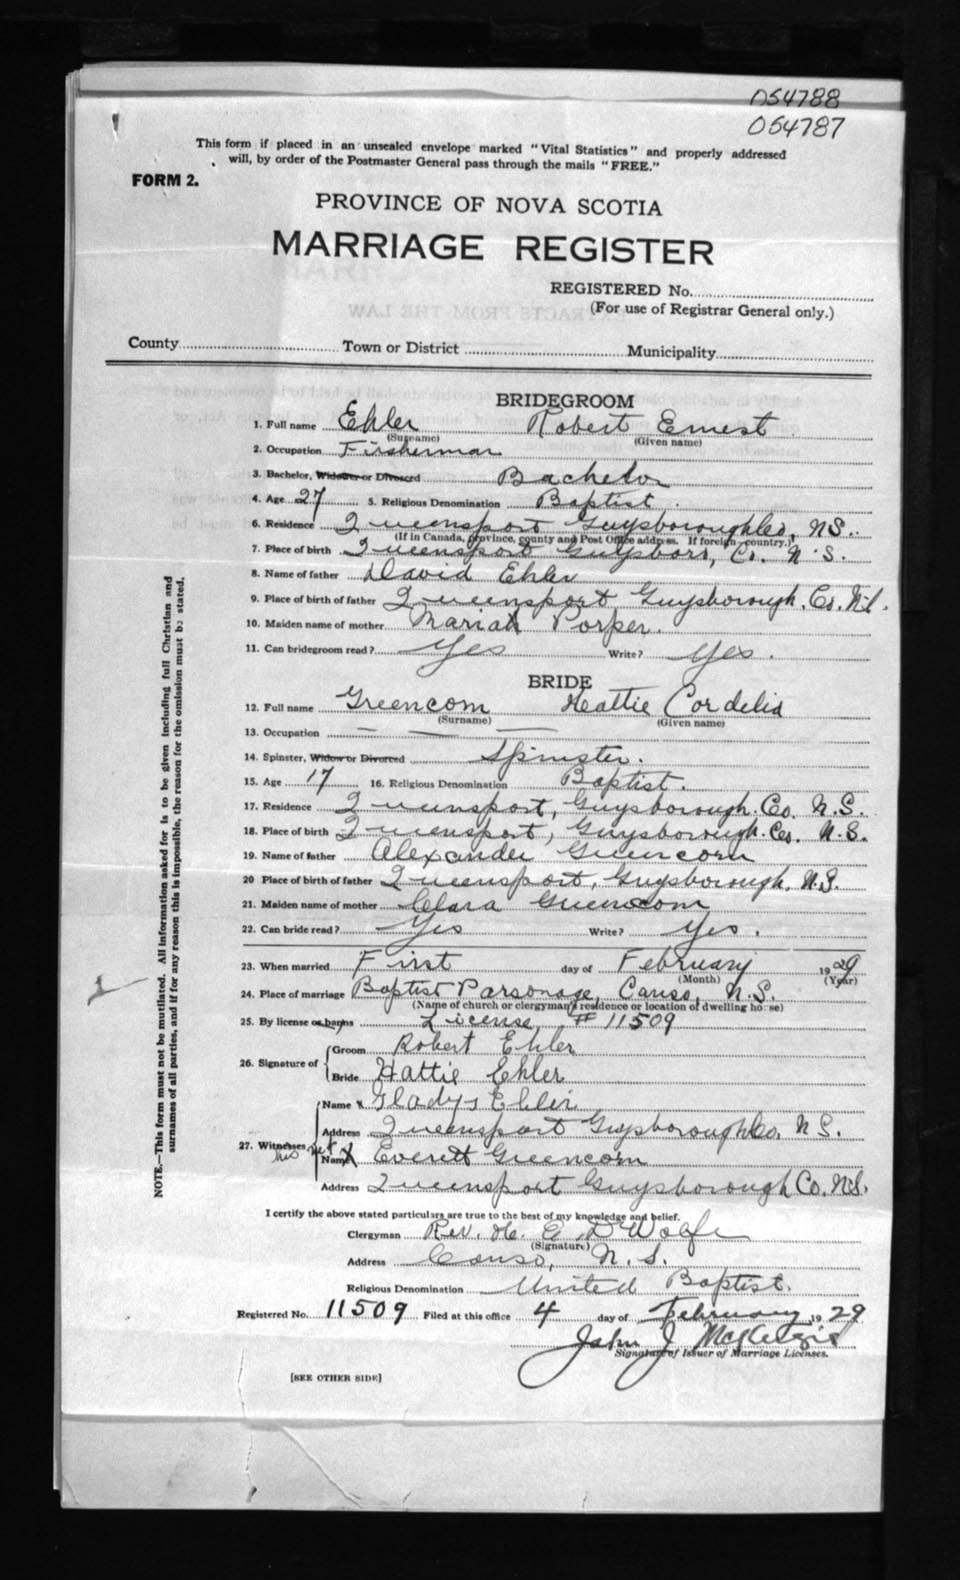 054788
054787
This form if placed in an unsealed envelope marked "Vital Statistics" and properly addressed
will, by order of the Postmaster General pass through the mails "FREE."
FORM 2.
PROVINCE OF NOVA SCOTIA
MARRIAGE REGISTER
REGISTERED No.
(For use of Registrar General only.)
County Town or District Municipality
BRIDEGROOM
1. Full name Ehler Robert Ernest
(Surname) (Given name)
2. Occupation Fisherman
3. Bachelor, Widower or Divorced Bachelor
4. Age 27 5. Religious Denomination Baptist.
6. Residence Queensport Guysborough Co, N.S.
(If in Canada, province, county and Post Office address. If foreign—country.)
7. Place of birth Queensport Guysboro, Co. N.S.
8. Name of father David Ehler
9. Place of birth of father Queensport Guysborough. Co. N.S.
10. Maiden name of mother Mariah Porper.
11. Can bridegroom read? Yes Write? Yes.
BRIDE
12. Full name Greencorn Hattie Cordelia
(Surname) (Given name)
13. Occupation — — —
14. Spinster, Widow or Divorced Spinster.
15. Age 17 16. Religious Denomination Baptist.
17. Residence Queensport, Guysborough. Co. N.S.
18. Place of birth Queensport, Guysborough. Co. N.S.
19. Name of father Alexander Greencorn
20 Place of birth of father Queensport, Guysborough, N.S.
21. Maiden name of mother Clara Greencorn
22. Can bride read? Yes Write? Yes.
23. When married First day of February 1929
(Month) (Year)
24. Place of marriage Baptist Parsonage, Canso, N.S.
(Name of church or clergyman's residence or location of dwelling house)
25. By license or banns License, # 11509
26. Signature of Groom Robert Ehler
Bride Hattie Ehler
27. Witnesses, Name x Gladys Ehler
Address Queensport Guysborough Co. N.S.
his Name X Everett Greencorn
Address Queensport Guysborough Co. N.S.
I certify the above stated particulars are true to the best of my knowledge and belief.
Clergyman Rev. H. E. DeWolfe
(Signature)
Address Canso, N.S.
Religious Denomination United Baptist.
Registered No. 11509 Filed at this office 4 day of February 1929
John J McKenzie
Signature of Issuer of Marriage Licenses.
[SEE OTHER SIDE]
NOTE.—This form must not be mutilated. All information asked for is to be given including full Christian and
surnames of all parties, and if for any reason this is impossible, the reason for the omission must be stated.